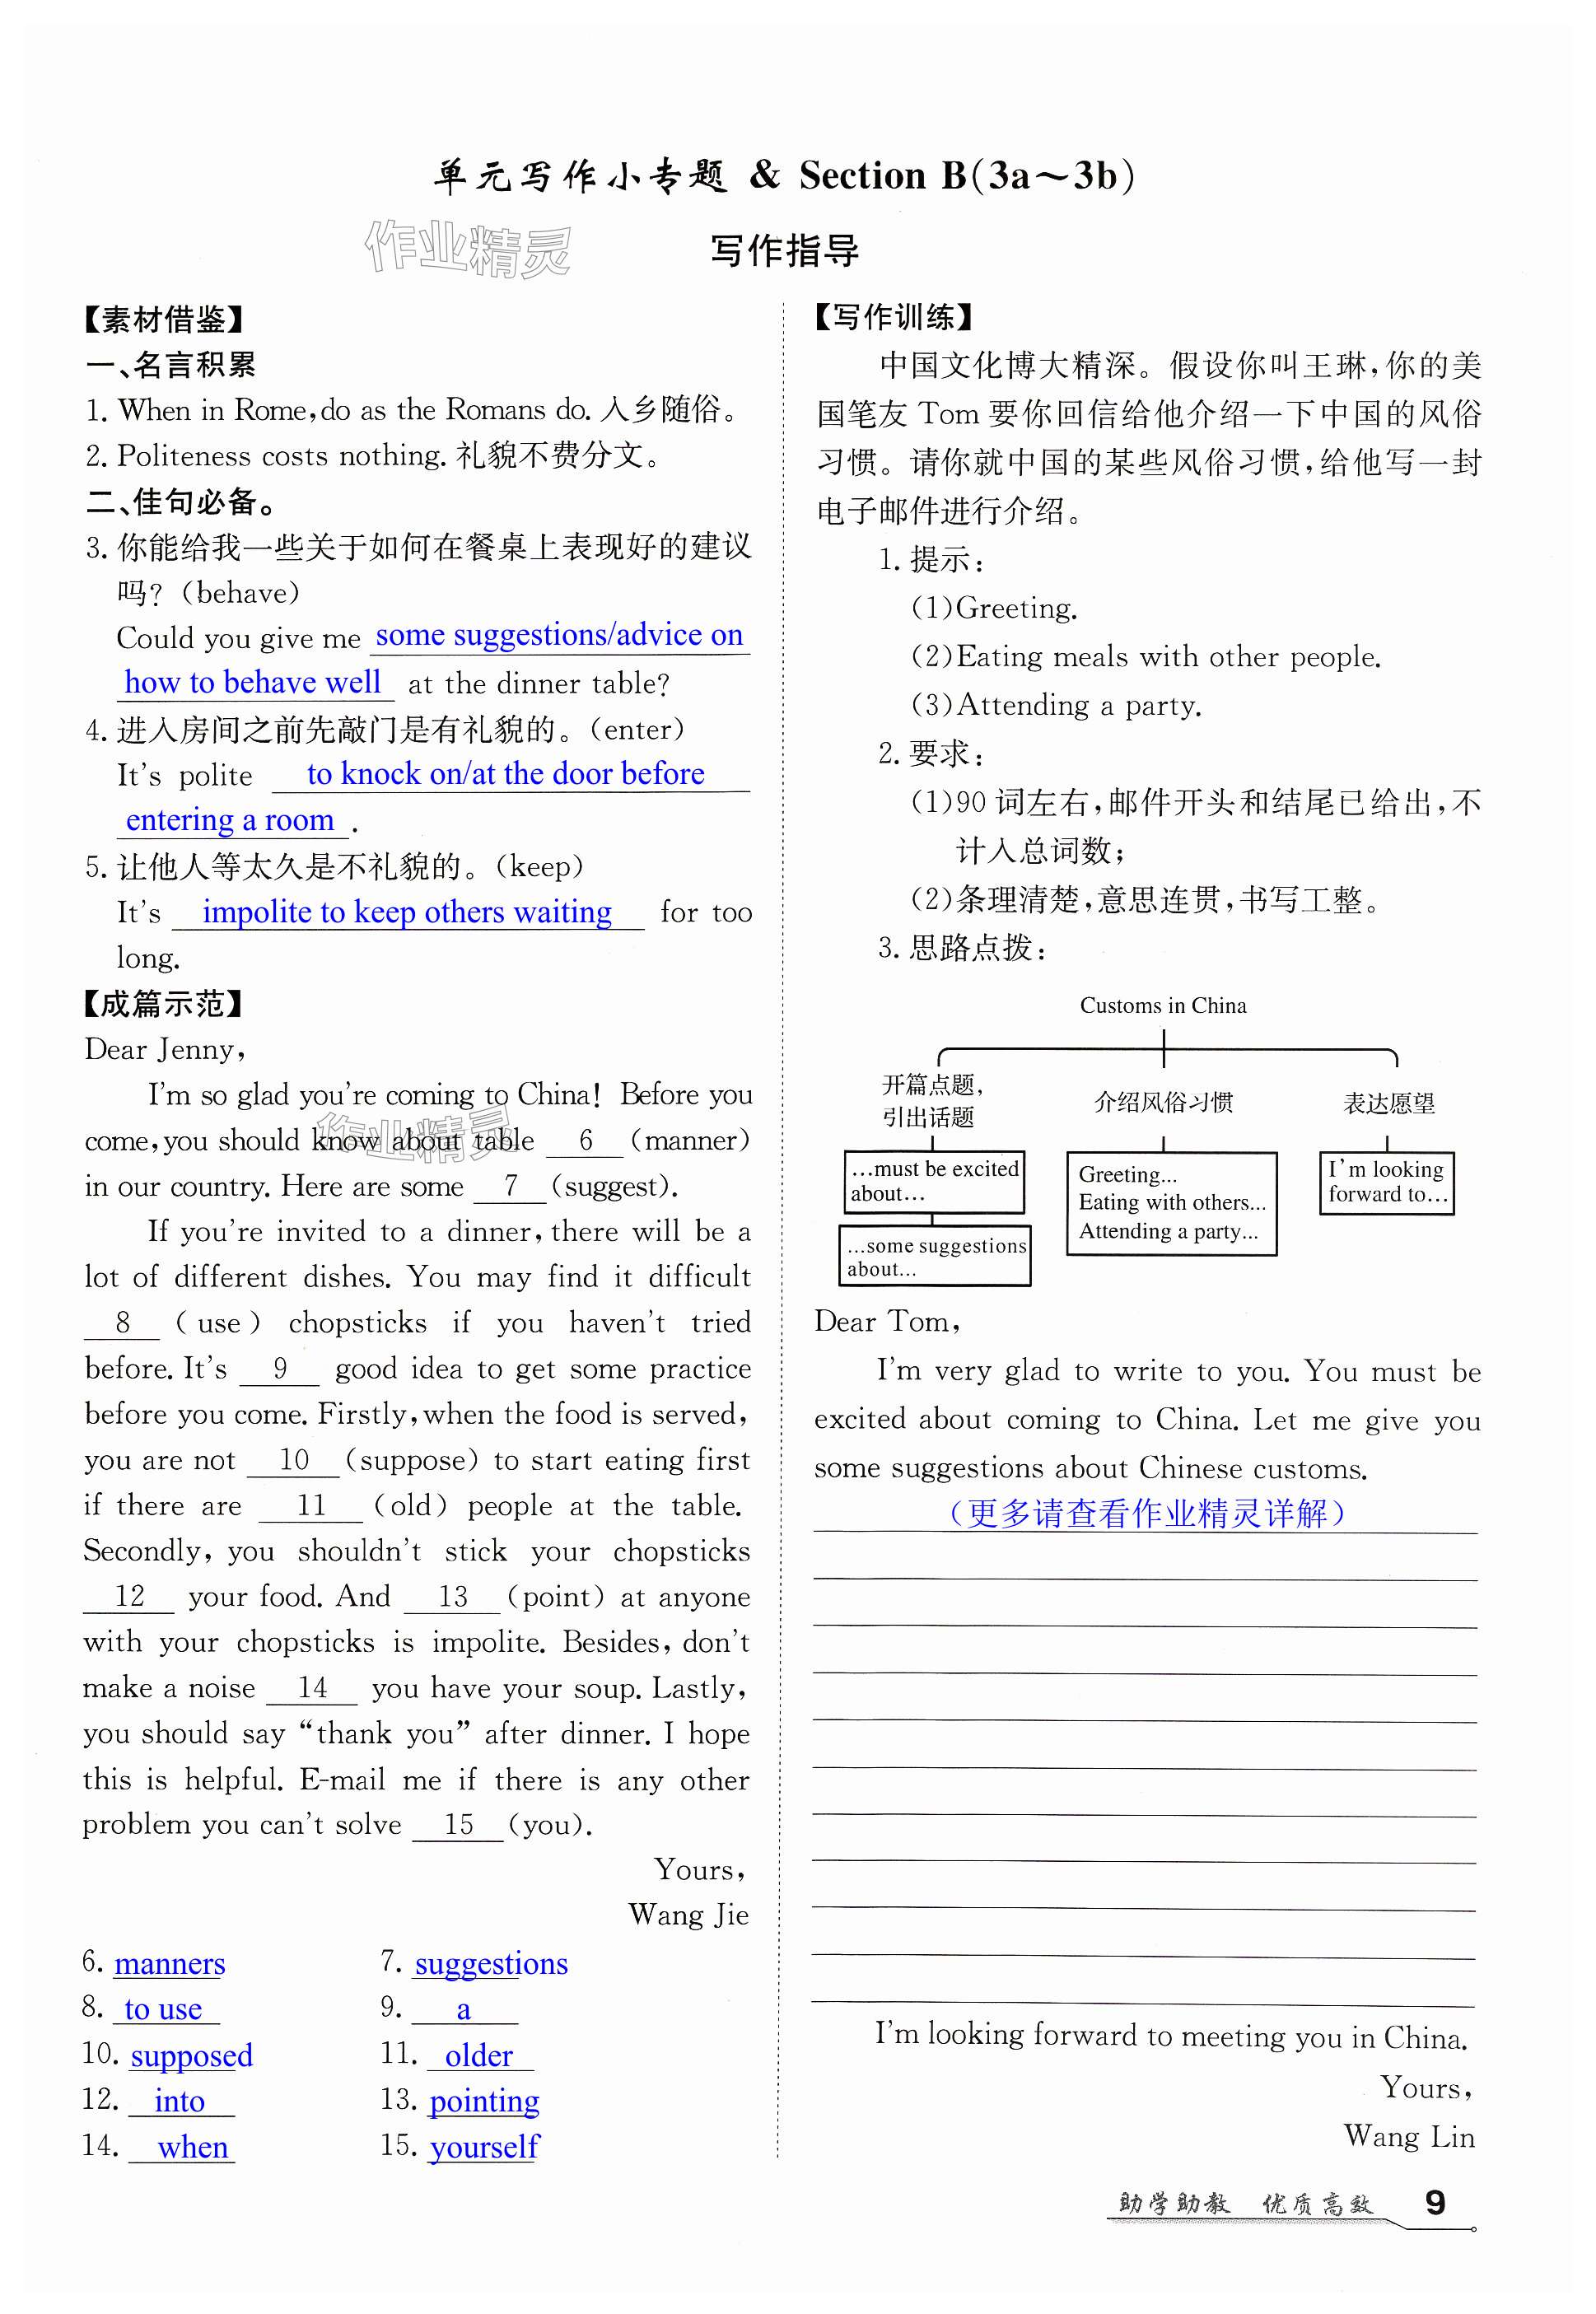 单元写作小专题 & Section B(3a～3b)
作业精灵
写作指导
【素材借鉴】
一、名言积累
1. When in Rome,do as the Romans do. 入乡随俗。
2. Politeness costs nothing. 礼貌不费分文。
二、佳句必备。
3. 你能给我一些关于如何在餐桌上表现好的建议
吗？（behave）
Could you give me some suggestions/advice on
how to behave well at the dinner table?
4. 进入房间之前先敲门是有礼貌的。（enter）
It's polite to knock on/at the door before
entering a room.
5. 让他人等太久是不礼貌的。（keep）
It's impolite to keep others waiting for too
long.
【成篇示范】
Dear Jenny,
I'm so glad you're coming to China! Before you
come,you should know about table 6 (manner)
in our country. Here are some 7 (suggest).
作业精灵
If you're invited to a dinner,there will be a
lot of different dishes. You may find it difficult
8 (use) chopsticks if you haven't tried
before. It's 9 good idea to get some practice
before you come. Firstly,when the food is served,
you are not 10 (suppose) to start eating first
if there are 11 (old) people at the table.
Secondly, you shouldn't stick your chopsticks
12 your food. And 13 (point) at anyone
with your chopsticks is impolite. Besides, don't
make a noise 14 you have your soup. Lastly,
you should say “thank you” after dinner. I hope
this is helpful. E-mail me if there is any other
problem you can't solve 15 (you).
Yours,
Wang Jie
6. manners 7. suggestions
8. to use 9. a
10. supposed 11. older
12. into 13. pointing
14. when 15. yourself
【写作训练】
中国文化博大精深。假设你叫王琳,你的美
国笔友 Tom 要你回信给他介绍一下中国的风俗
习惯。请你就中国的某些风俗习惯,给他写一封
电子邮件进行介绍。
1. 提示：
(1)Greeting.
(2)Eating meals with other people.
(3)Attending a party.
2. 要求：
(1)90 词左右,邮件开头和结尾已给出,不
计入总词数；
(2)条理清楚,意思连贯,书写工整。
3. 思路点拨：
Customs in China
开篇点题,
引出话题
介绍风俗习惯
表达愿望
...must be excited
about...
...some suggestions
about...
Greeting...
Eating with others...
Attending a party...
I'm looking
forward to...
Dear Tom,
I'm very glad to write to you. You must be
excited about coming to China. Let me give you
some suggestions about Chinese customs.
（更多请查看作业精灵详解）
I'm looking forward to meeting you in China.
Yours,
Wang Lin
助学助教 优质高效 9